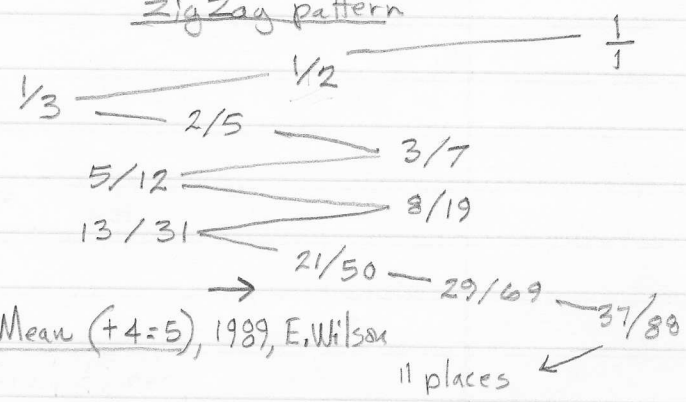 ZigZag pattern
1/1
1/2
1/3
2/5
3/7
5/12
8/19
13/31
21/50
29/69
37/88
→
Mean (+4=5), 1989, E.Wilson
11 places